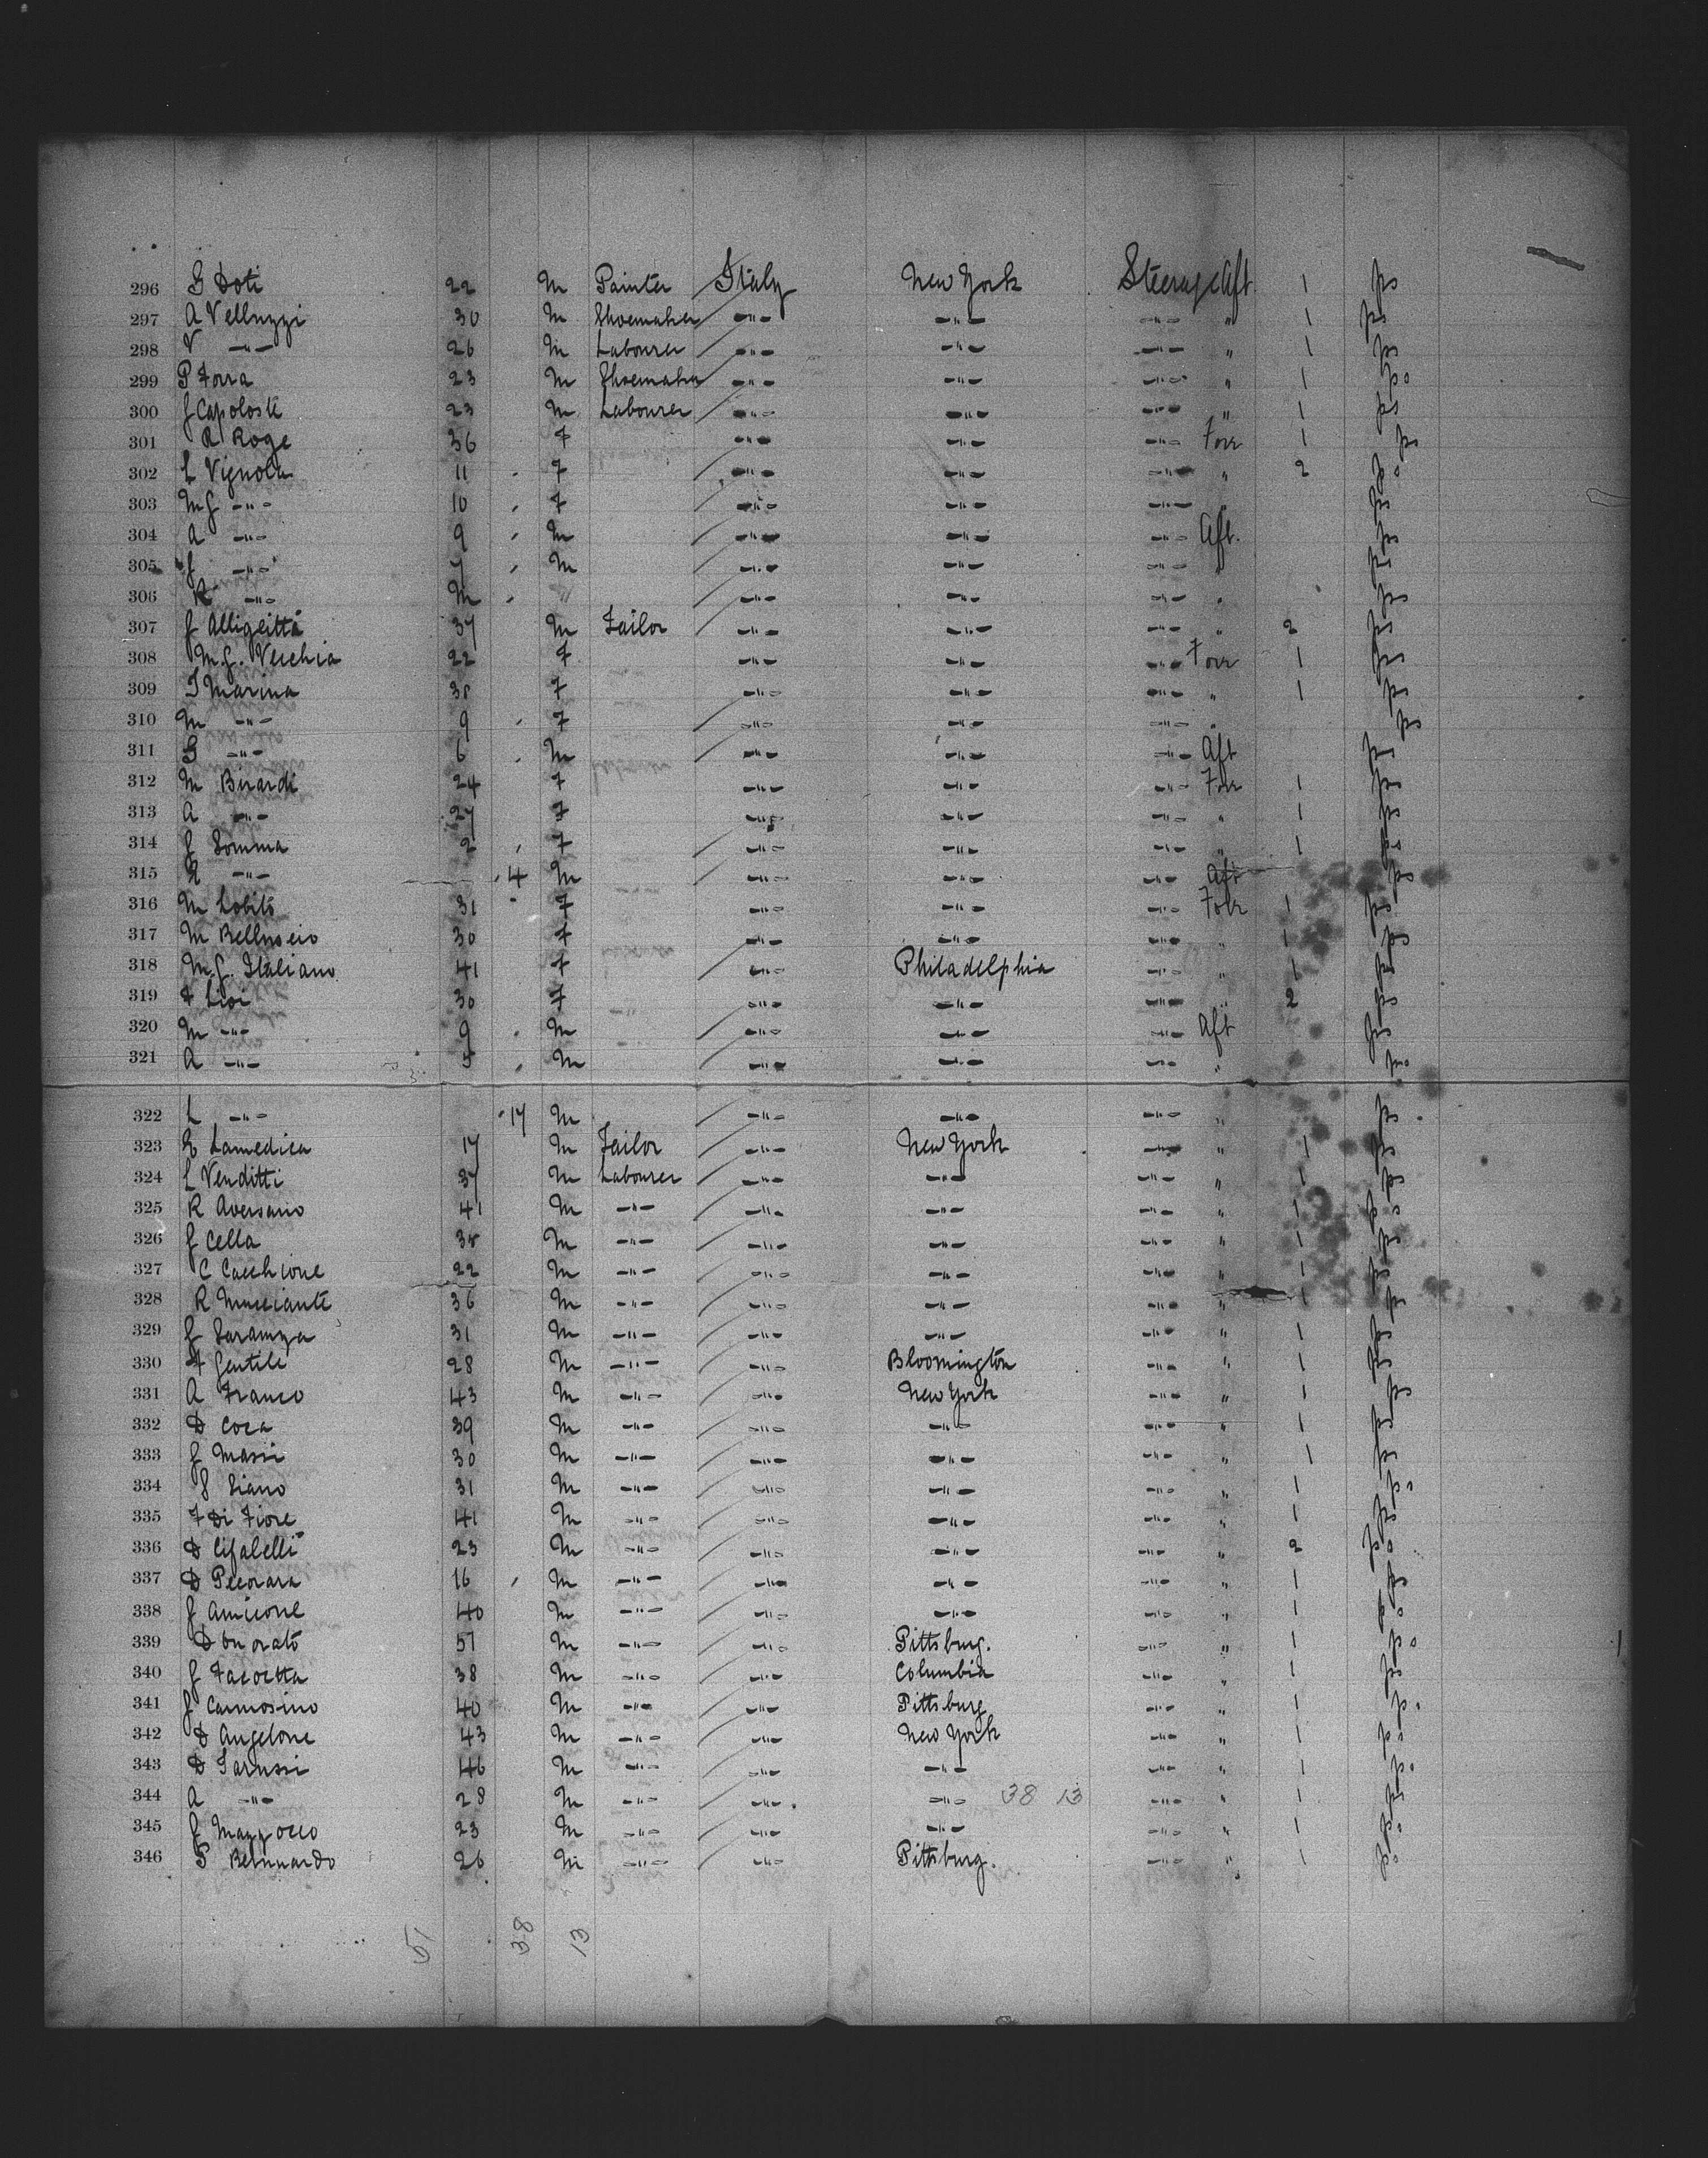 296 G Doti 22 M Painter Italy New York Steerage Aft 1 ps
297 A Velluzzi 30 M Shoemaker -"- -"- -"- " 1 ps
298 V -"- 26 M Labourer -"- -"- -"- " 1 ps
299 P Forra 23 M Shoemaker -"- -"- -"- " 1 ps
300 J Capolosti 23 M Labourer -"- -"- -"- " 1 ps
301 R Roge 36 F -"- -"- -"- Forr 1 ps
302 L Vignola 11 F -"- -"- -"- " 2 ps
303 M J -"- 10 F -"- -"- -"- ps
304 A -"- 9 M -"- -"- -"- Aft. ps
305 J -"- 7 M -"- -"- -"- " ps
306 R -"- M " -"- -"- -"- " ps
307 J Alligeitta 37 M Tailor -"- -"- -"- " 2 ps
308 M.J. Vecchia 22 F -"- -"- -"- Forr 1 ps
309 T Marina 38 F -"- -"- -"- " 1 ps
310 M -"- 9 F -"- -"- -"- " ps
311 G -"- 6 M -"- -"- -"- Aft ps
312 M Birardi 24 F -"- -"- -"- Forr 1 ps
313 A -"- 27 F -"- -"- -"- " 1 ps
314 J Somma 2 F -"- -"- -"- " 1 ps
315 -"- 4 M -"- -"- -"- Aft ps
316 M Lobito 31 F -"- -"- -"- Forr 1 ps
317 M Belluscio 30 F -"- -"- -"- " 1 ps
318 M.J. Italiano 41 F -"- Philadelphia -"- " 1 ps
319 F Lioi 30 F -"- -"- -"- " 2 ps
320 M -"- 9 M -"- -"- -"- Aft ps
321 A -"- 5 M -"- -"- -"- " ps
322 L -"- 17 M -"- -"- -"- " ps
323 E Lamedica 17 M Tailor -"- New York -"- " 1 ps
324 L Venditti 37 M Labourer -"- -"- -"- " 1 ps
325 R Aversano 41 M -"- -"- -"- -"- " 1 ps
326 J Cella 38 M -"- -"- -"- -"- " 1 ps
327 C Cacchione 22 M -"- -"- -"- -"- " 1 ps
328 R Musciante 36 M -"- -"- -"- -"- " 1 ps
329 J Saramza 31 M -"- -"- -"- -"- " 1 ps
330 F Gentile 28 M -"- -"- Bloomington -"- " 1 ps
331 A Franco 43 M -"- -"- New York -"- " 1 ps
332 D Coca 39 M -"- -"- -"- -"- " 1 ps
333 J Massi 30 M -"- -"- -"- -"- " 1 ps
334 S Siano 31 M -"- -"- -"- -"- " 1 ps
335 F Di Fiore 41 M -"- -"- -"- -"- " 1 ps
336 D Cifalelli 23 M -"- -"- -"- -"- " 2 ps
337 D Pecorara 16 M -"- -"- -"- -"- " 1 ps
338 J Amicone 40 M -"- -"- -"- -"- " 1 ps
339 D Onorato 51 M -"- -"- Pittsburg. -"- " 1 ps
340 J Iacoetta 38 M -"- -"- Columbia -"- " 1 ps
341 J Carmosino 40 M -"- -"- Pittsburg -"- " 1 ps
342 D Angelone 43 M -"- -"- New York -"- " 1 ps
343 D Iarussi 46 M -"- -"- -"- -"- " 1 ps
344 A -"- 28 M -"- -"- -"- 38 13 -"- " 1 ps
345 J Mazzocco 23 M -"- -"- -"- -"- " 1 ps
346 P Bernnardo 26 M -"- -"- Pittsburg. -"- " 1 ps
51 38 13